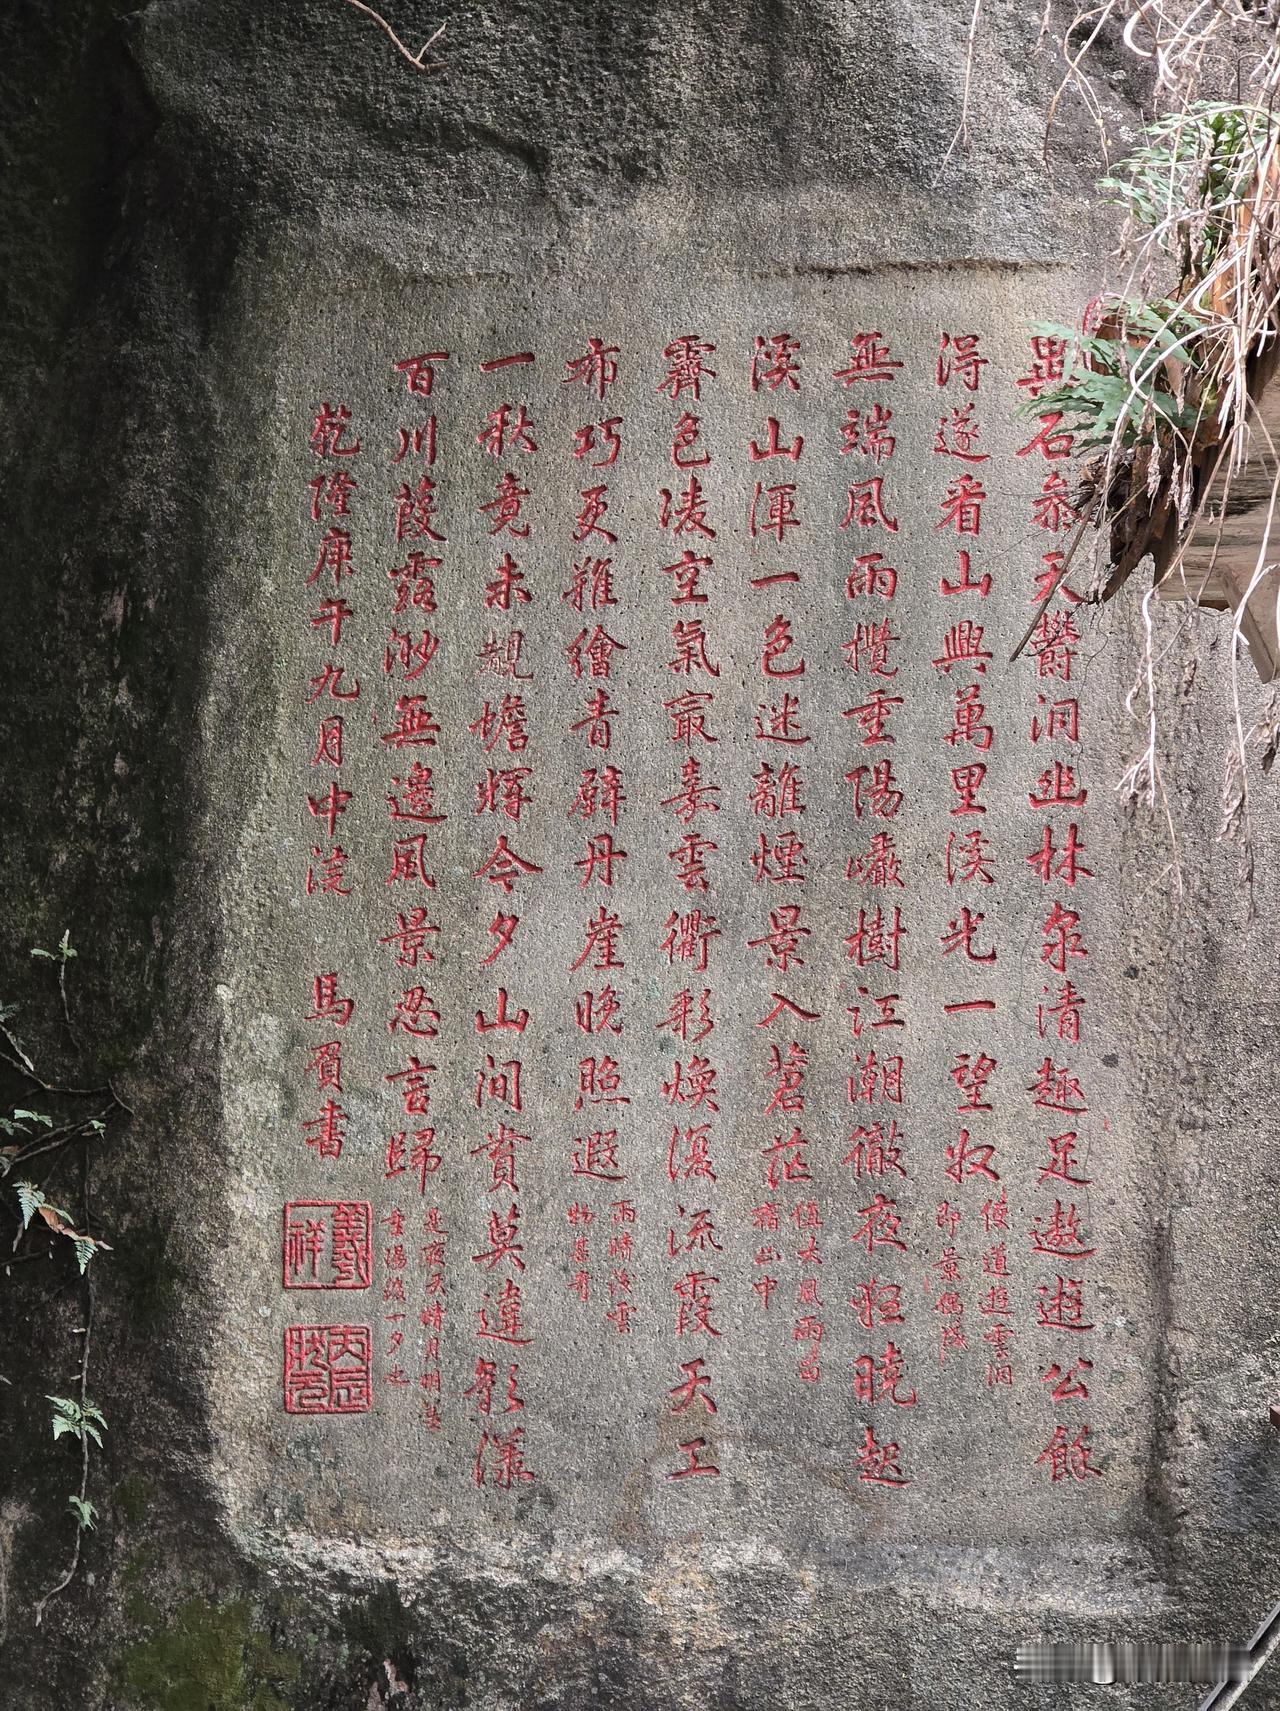 異石參天欝洞幽林泉清趣足遨遊公餘
得遂看山興萬里溪光一望收
便道遊雲洞
即景偶成
無端風雨攪重陽巘樹江潮徹夜狂曉起
溪山渾一色迷離煙景入蒼茫
值大風雨留
宿山中
霽色淩空氣最嘉雲衢彩煥漾流霞天工
布巧更難繪青壁丹崖晚照遐
雨晴後雲
物甚奇
一秋竟未覩蟾輝今夕山間賞莫違影漾
百川葭露渺無邊風景忍言歸
是夜天晴月明蓋
重陽後一夕也
乾隆庚午九月中浣 馬負書
祥
丙辰狀元